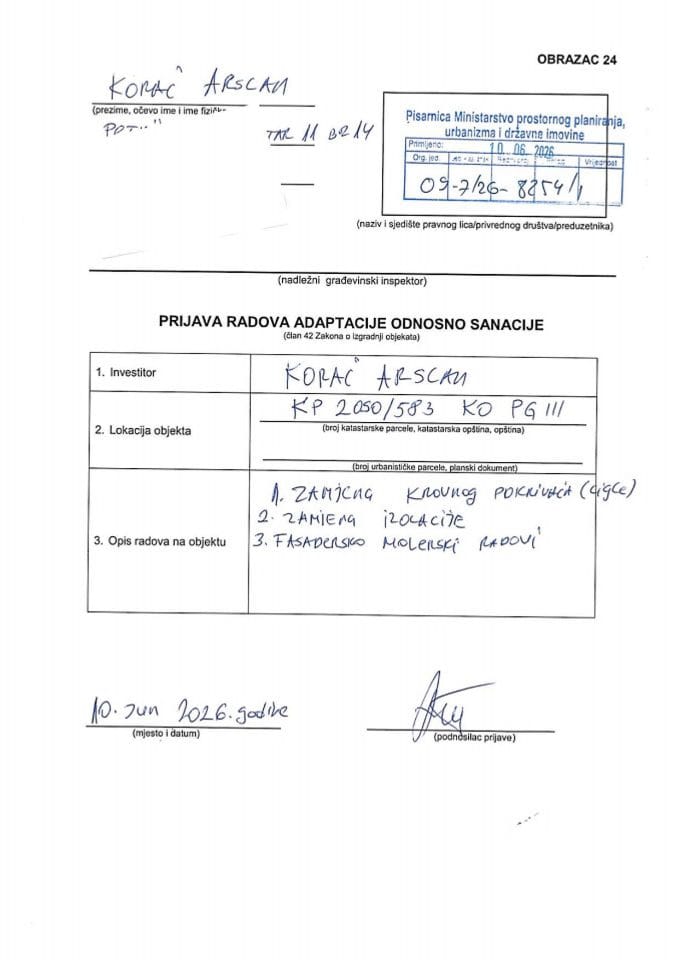 OBRAZAC 24
KORAĆ ARSLAN
(prezime, očevo ime i ime
TAR 11 BR 14
Pisarnica Ministarstvo prostornog planiranja,
urbanizma i državne imovine
Primljeno: 10. 06. 2026
Org. jed. Vrijednost
09-7/26-8254/1
(naziv i sjedište pravnog lica/privrednog društva/preduzetnika)
(nadležni građevinski inspektor)
PRIJAVA RADOVA ADAPTACIJE ODNOSNO SANACIJE
(član 42 Zakona o izgradnji objekata)
1. Investitor
KORAĆ ARSLAN
2. Lokacija objekta
KP 2050/583 KO PG III
(broj katastarske parcele, katastarska opština, opština)
(broj urbanističke parcele, planski dokument)
3. Opis radova na objektu
1. ZAMJENA KROVNOG POKRIVAČA (CIGLE)
2. ZAMJENA IZOLACIJE
3. FASADERSKO MOLERSKI RADOVI
10. JUN 2026. godine
(mjesto i datum)
(podnosilac prijave)